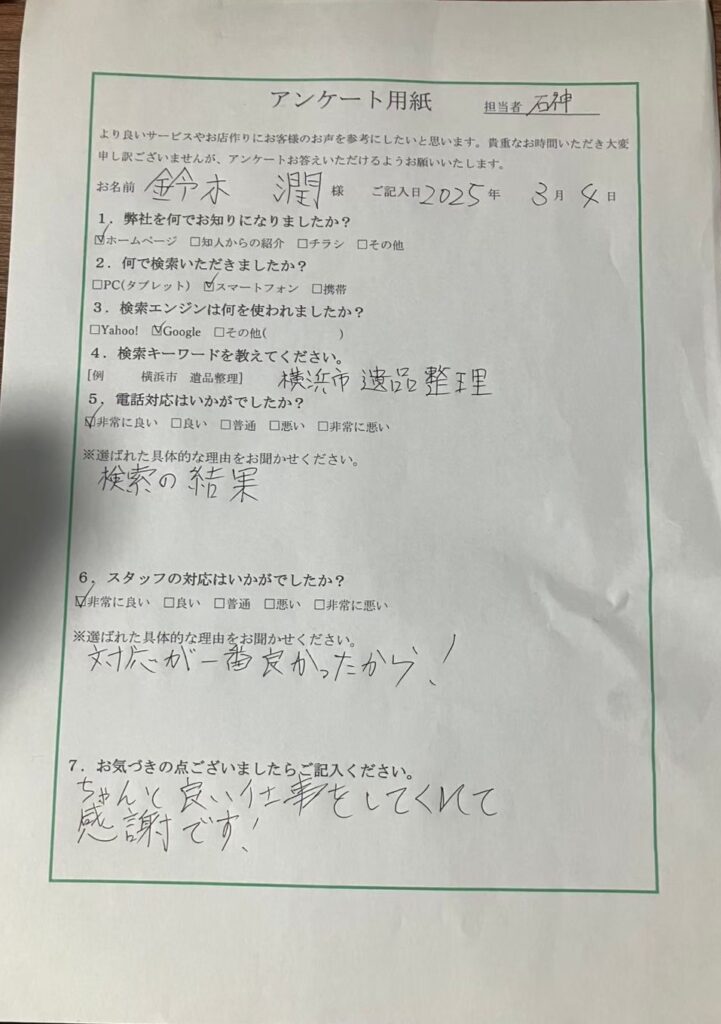 アンケート用紙 担当者 石神
より良いサービスやお店作りにお客様のお声を参考にしたいと思います。貴重なお時間いただき大変
申し訳ございませんが、アンケートお答えいただけるようお願いいたします。
お名前 鈴木 潤 様 ご記入日 2025 年 3 月 4 日
1．弊社を何でお知りになりましたか？
☑ホームページ □知人からの紹介 □チラシ □その他
2．何で検索いただきましたか？
□PC(タブレット) ☑スマートフォン □携帯
3．検索エンジンは何を使われましたか？
□Yahoo! ☑Google □その他( )
4．検索キーワードを教えてください。
[例 横浜市 遺品整理] 横浜市 遺品整理
5．電話対応はいかがでしたか？
☑非常に良い □良い □普通 □悪い □非常に悪い
※選ばれた具体的な理由をお聞かせください。
検索の結果
6．スタッフの対応はいかがでしたか？
☑非常に良い □良い □普通 □悪い □非常に悪い
※選ばれた具体的な理由をお聞かせください。
対応が一番良かったから！
7．お気づきの点ございましたらご記入ください。
ちゃんと良い仕事をしてくれて
感謝です！